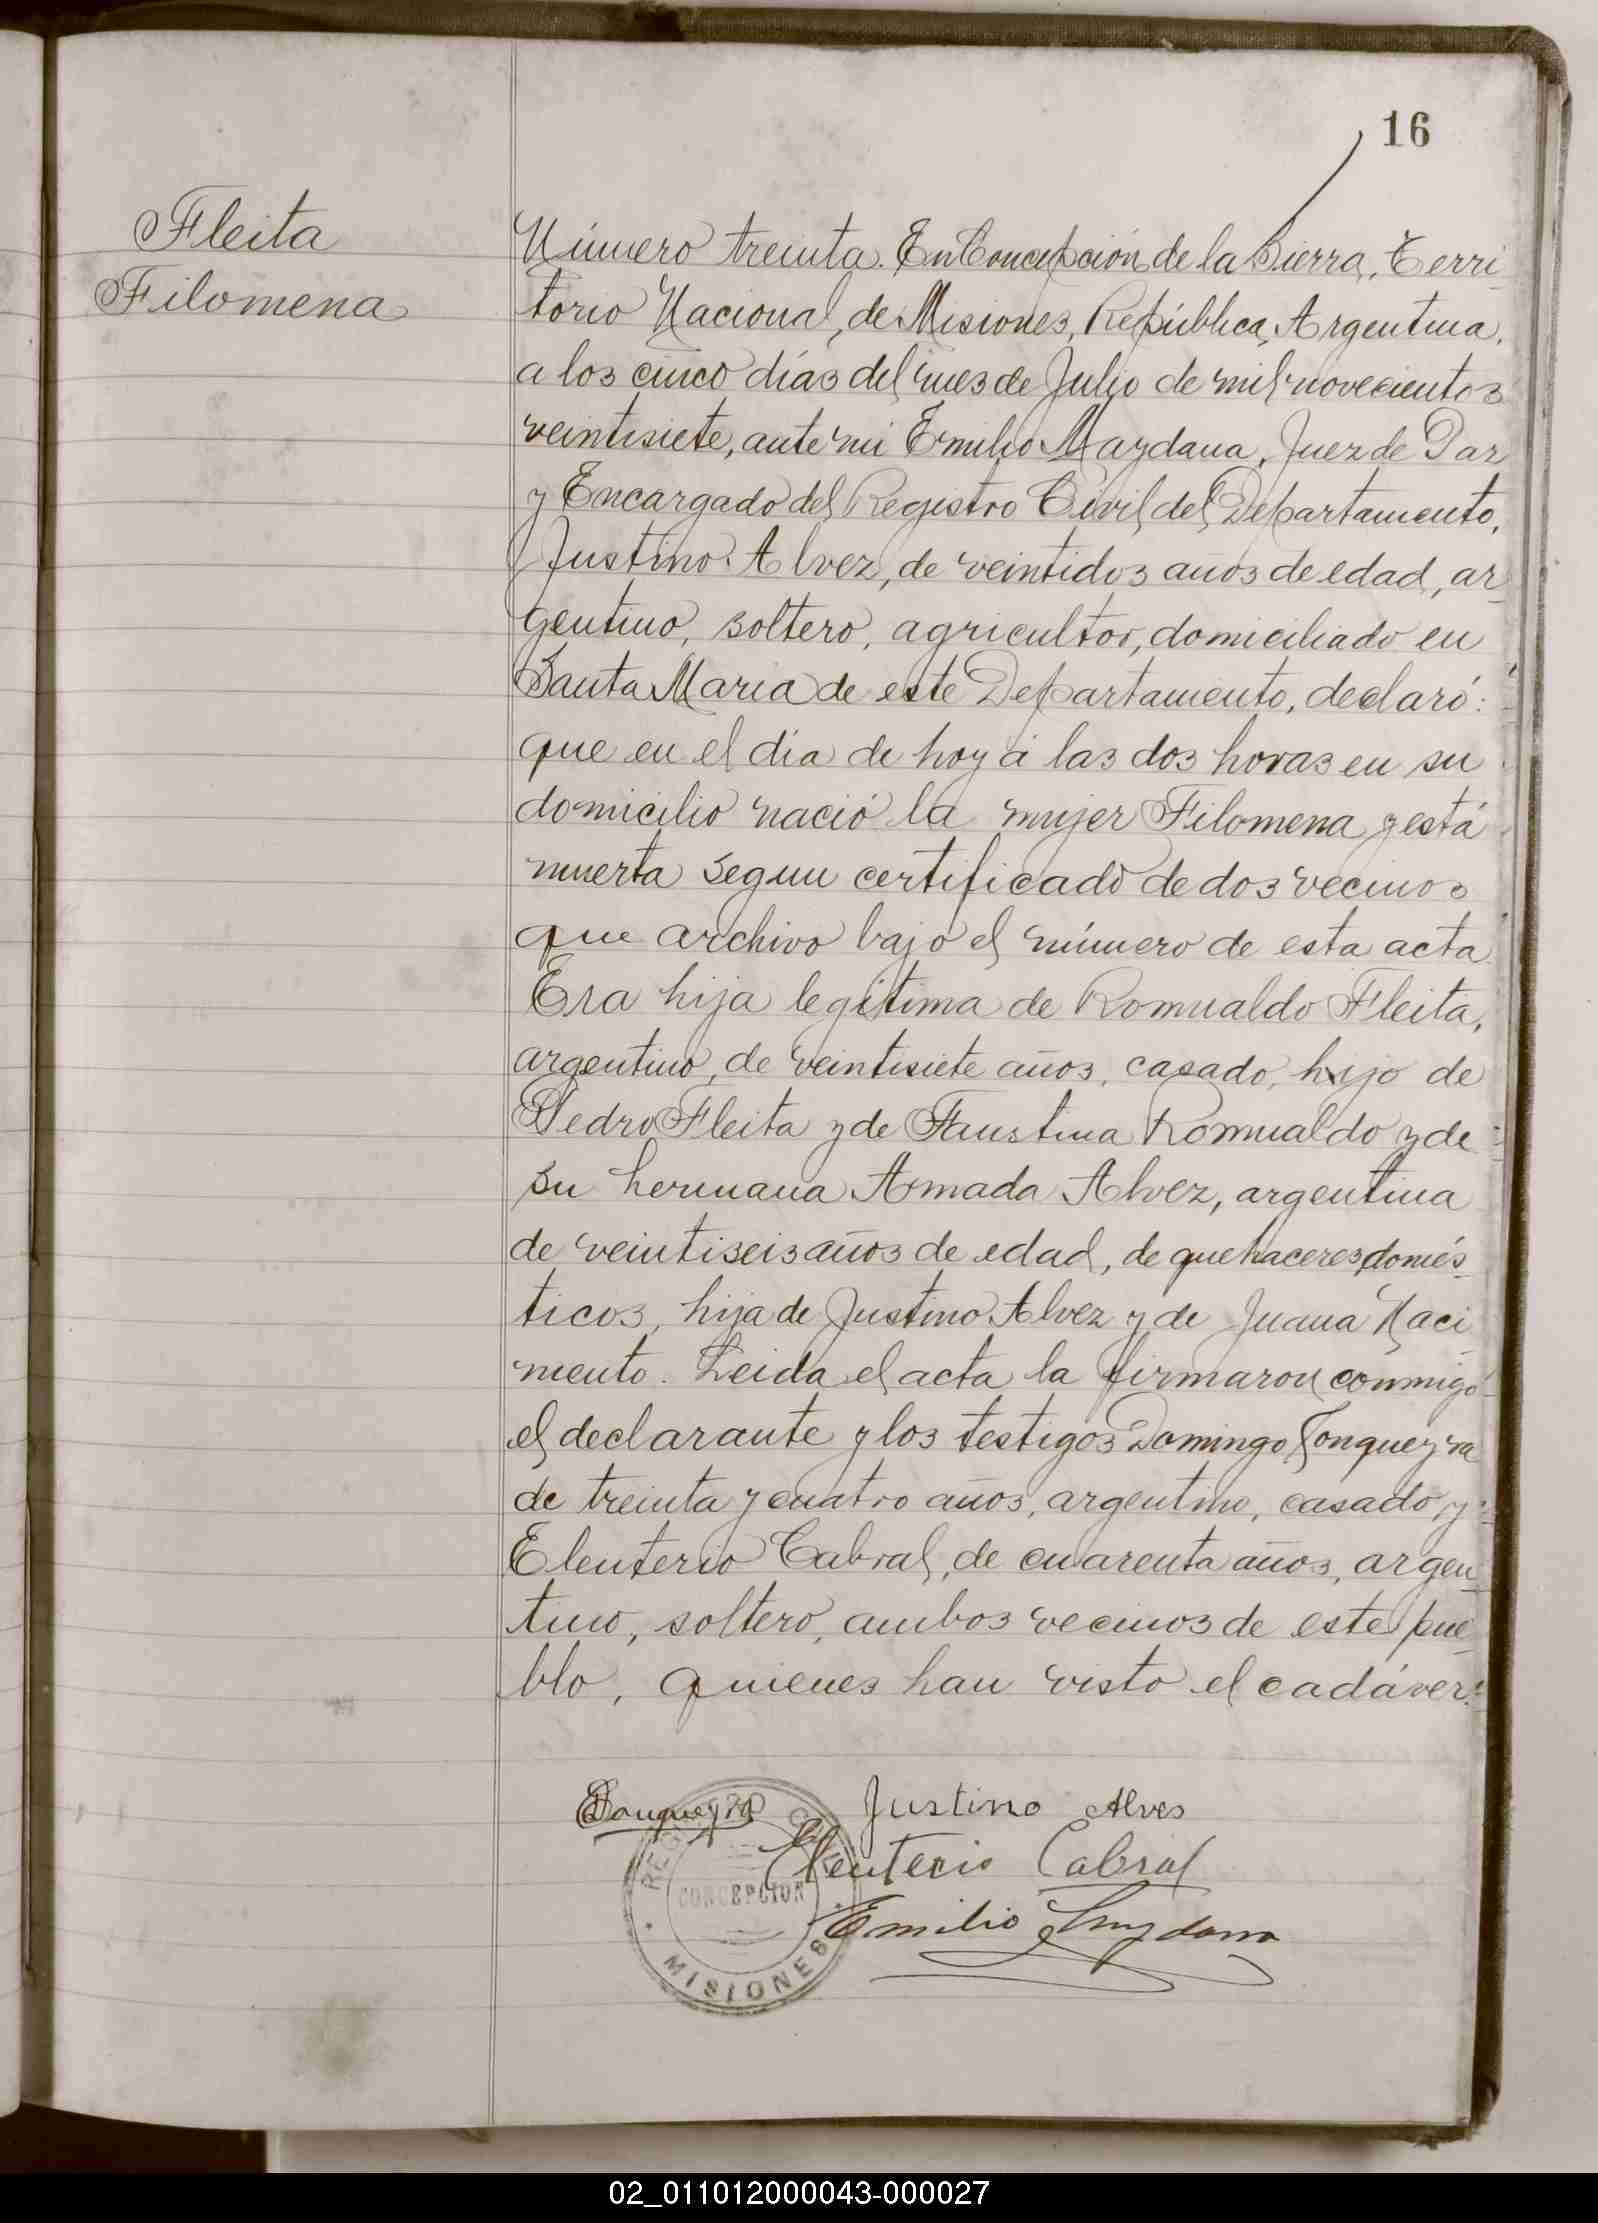 16
Fleita
Filomena
Número treinta. En Concepción de la Sierra, Terri-
torio Nacional, de Misiones, República, Argentina,
a los cinco días del mes de Julio de mil novecientos
veintisiete, ante mi Emilio Maydana, Juez de Paz
y Encargado del Registro Civil, del Departamento,
Justino Alvez, de veintidos años de edad, ar-
gentino, soltero, agricultor, domiciliado en
Santa María de este Departamento, declaró:
que en el día de hoy á las dos horas en su
domicilio nació la mujer Filomena y está
muerta segun certificado de dos vecinos
que archivo bajo el número de esta acta.
Era hija legítima de Romualdo Fleita,
argentino, de veintisiete años, casado, hijo de
Pedro Fleita y de Faustina Romualdo y de
su hermana Amada Alvez, argentina
de veintiseis años de edad, de quehaceres domés-
ticos, hija de Justino Alvez y de Juana Naci-
mento. Leida el acta la firmaron conmigo
el declarante y los testigos Domingo Fonqueyra
de treinta y cuatro años, argentino, casado y
Eleuterio Cabral, de cuarenta años, argen-
tino, soltero, ambos vecinos de este pue-
blo, quienes han visto el cadáver.
Justino Alves
Eleuterio Cabral
Emilio Maydana
REGISTRO CIVIL
CONCEPCION
MISIONES
02_011012000043-000027